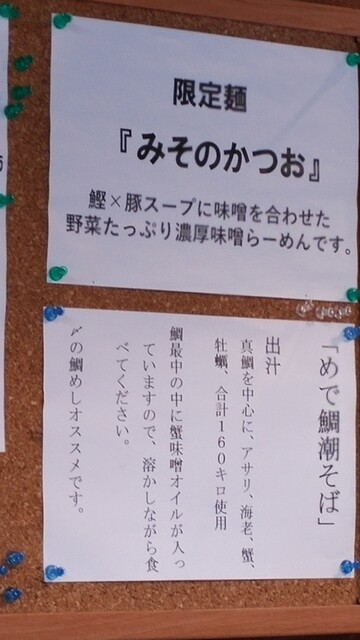 限定麺
『みそのかつお』
鰹×豚スープに味噌を合わせた
野菜たっぷり濃厚味噌らーめんです。
「めで鯛潮そば」
出汁
真鯛を中心に、アサリ、海老、蟹、
牡蠣、合計160キロ使用
鯛最中の中に蟹味噌オイルが入っ
ていますので、溶かしながら食
べてください。
〆の鯛めしオススメです。